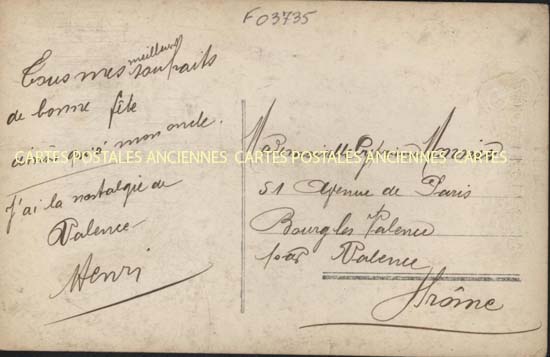 F03735
Tous mes meilleurs souhaits
de bonne fête
ainsi qu'à mon oncle.
J'ai la nostalgie de
Valence
Henri
CARTES POSTALES ANCIENNES CARTES POSTALES ANCIENNES CARTES POSTALES ANCIENNES
Mademoiselle
51 Avenue de Paris
Bourg les Valence
par Valence
Drôme